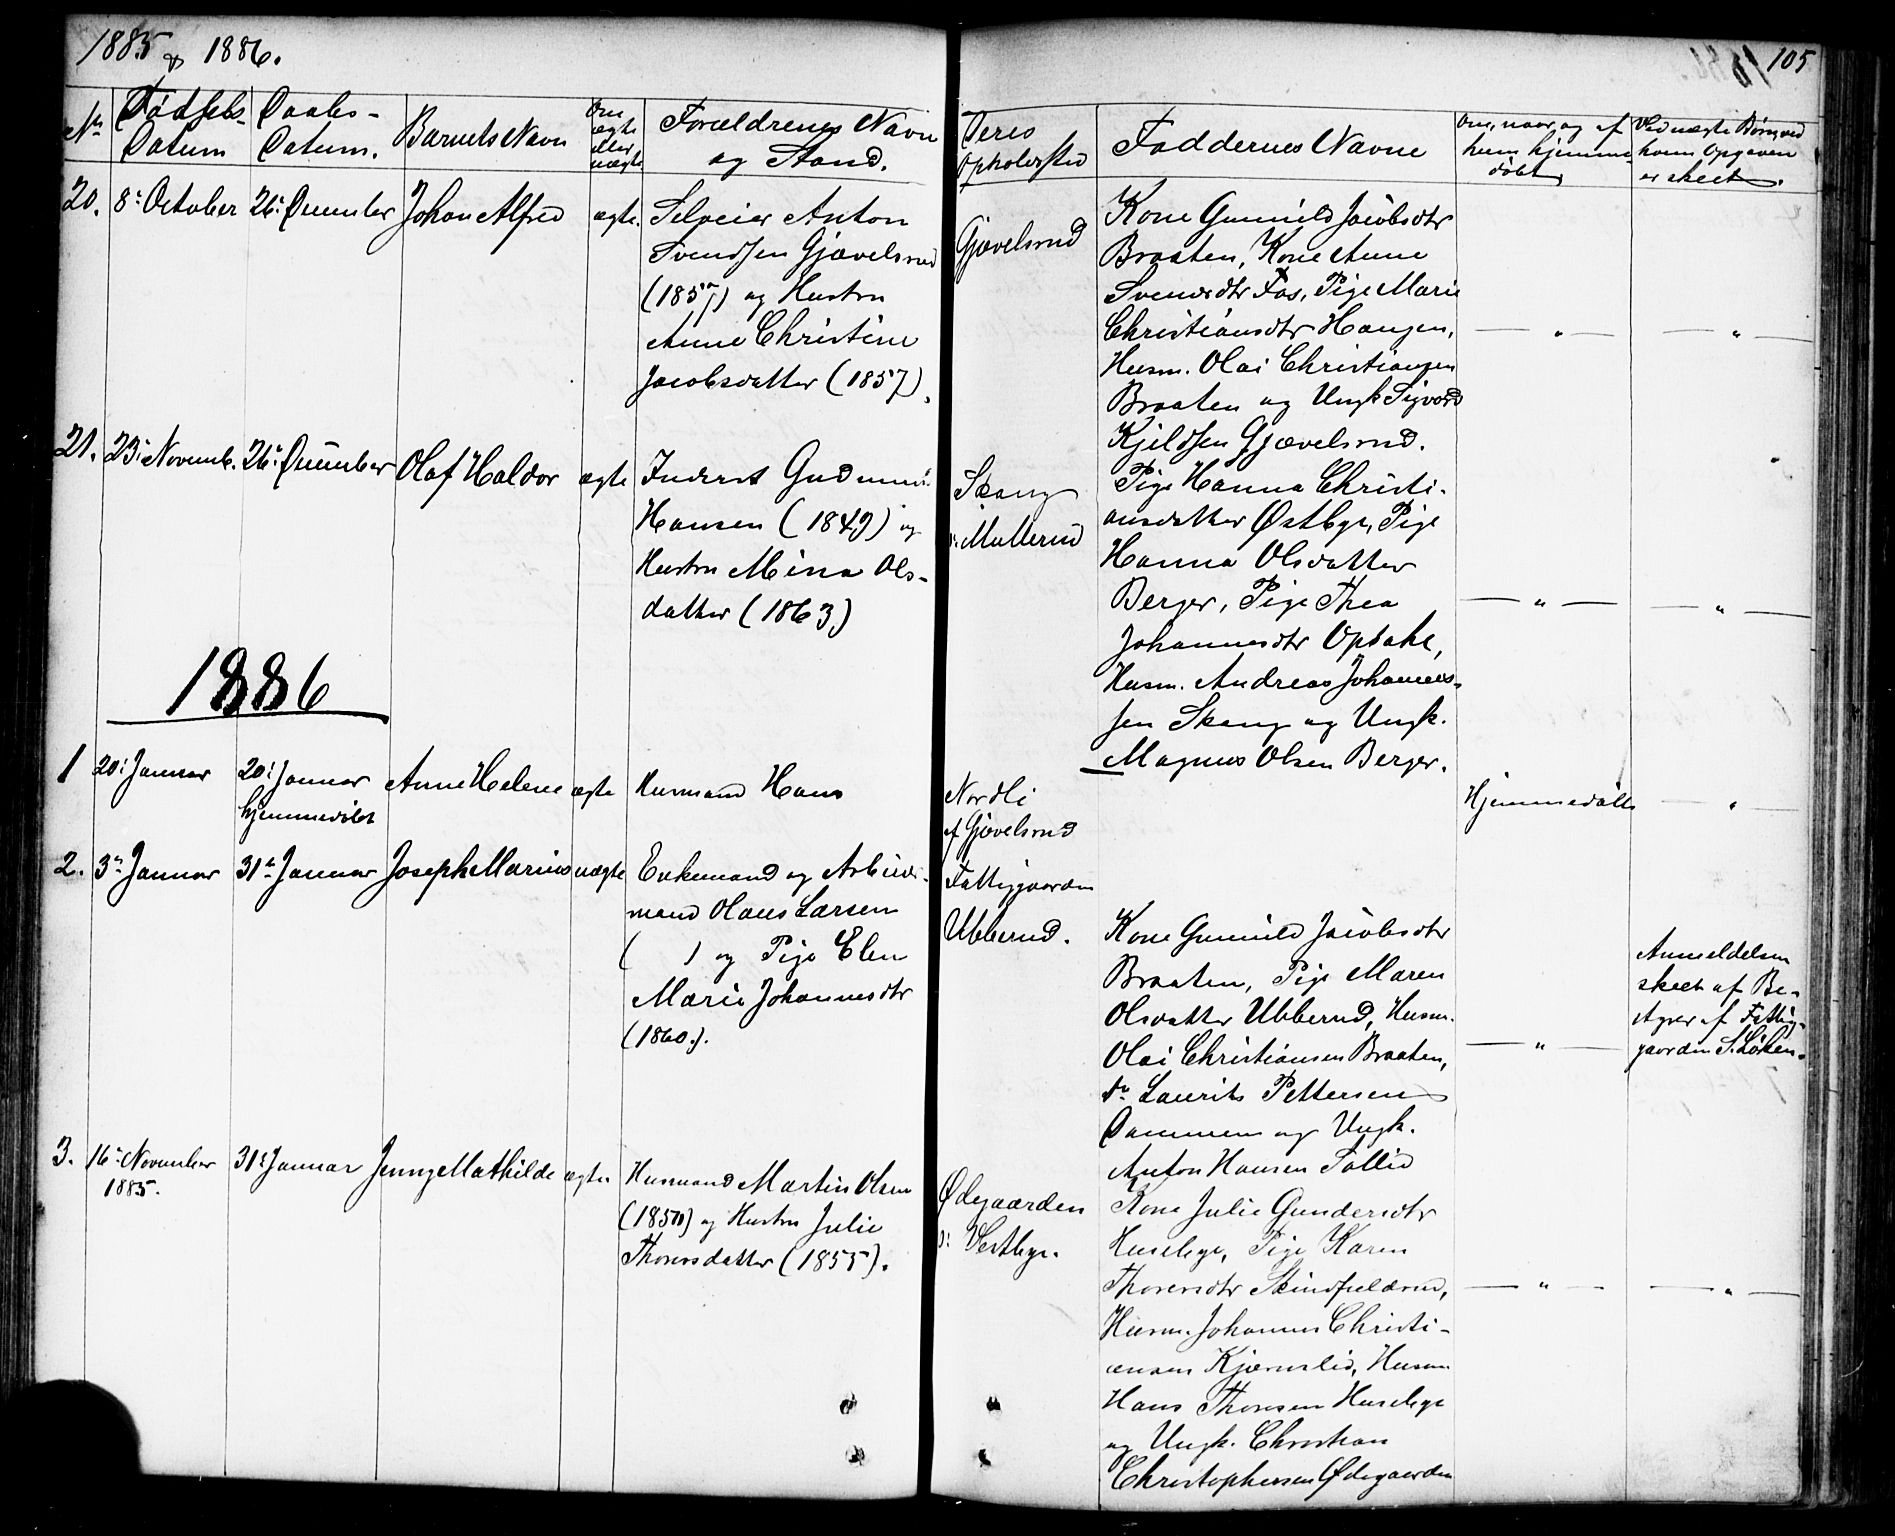 1885 & 1886.
105
No
Fødsels-
Datum
Daabs-
Datum.
Barnets Navn
Om
ægte
eller
uægte
Forældrenes Navn
og Stand.
Deres
Opholdssted
Faddernes Navne
Om, naar og af
hvem hjemme-
døbt
Ved uægte Børn, ved
hvem Opgaven
er skeet.
20.
8de October
26de December
Johan Alfred
ægte.
Selveier Anton
Svendsen Gjævelsrud
(1857) og Hustru
Anne Christine
Jacobsdatter (1857).
Gjævelsrud
Kone Gunnild Jacobsdtr
Braaten, Kone Anne
Svendsdtr Fos, Pige Marie
Christiansdtr Haugen,
Husm. Olai Christiansen
Braaten og Ungk Sigvard
Kjeldsen Gjævelsrud.
— " —
— " —
21.
23de Novemb.
26de December
Olaf Haldor
ægte
Inderst Gudmund
Hansen (1849) og
Hustru Mina Ols-
datter (1863)
Skaug
Mullerud
Pige Hanna Christi-
ansdatter Østbye, Pige
Hanna Olsdatter
Berger, Pige Thea
Johannesdtr Opsahl,
Husm. Andreas Johannes-
sen Skaug og Ungk.
Magnus Olsen Berger.
— " —
— " —
1886
1
20de Januar
20de Januar
hjemmedøbt
Anne Helene
ægte
Husmand Hans
Nordli
af Gjævelsrud
Hjemmedøbt
— " —
2.
3die Januar
31te Januar
Joseph Marius
uægte
Enkemand og Arbeids-
mand Olaus Larsen
( ) og Pige Elen
Marie Johannesdtr
(1860.).
Fattiggaarden
Ubberud.
Kone Gunnild Jacobsdtr
Braaten, Pige Maren
Olsdatter Ubberud, Husm.
Olai Christiansen Braaten,
do Laurits Pettersen
Dammen og Ungk.
Anton Hansen Sollid
— " —
Anmeldelsen
skeet af Be-
styrer af Fattig-
gaarden S. Løken.
3.
16de November
1885.
31te Januar
Jenny Mathilde
ægte
Husmand Martin Olsen
(1850) og Hustru Julie
Thorersdatter (1855).
Ødegaarden
Vestbye.
Kone Julie Gundersdtr
Husebye, Pige Karen
Thorersdtr Skindfieldrud,
Husm. Johannes Christi-
ansen Kjærnslid, Husm
Hans Thorersen Husebye
og Ungk. Christian
Christophersen Ødegaarden
— " —
— " —